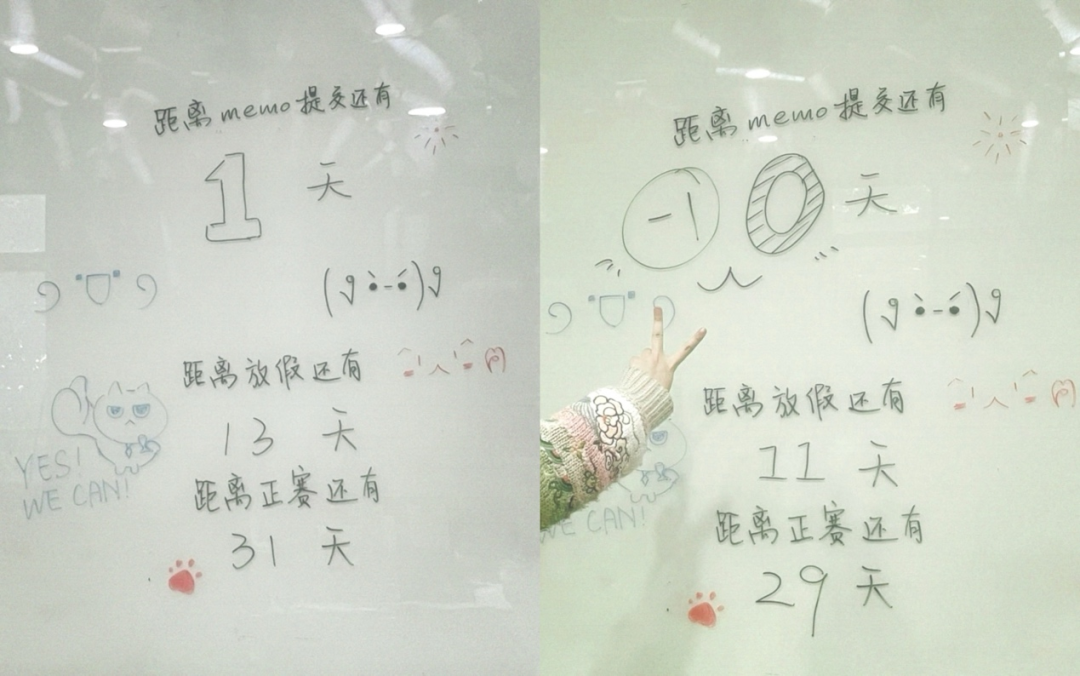 距离memo提交还有
1 天
距离放假还有
13 天
YES!
WE CAN!
距离正赛还有
31 天
距离memo提交还有
-1 0 天
距离放假还有
11 天
WE CAN!
距离正赛还有
29 天